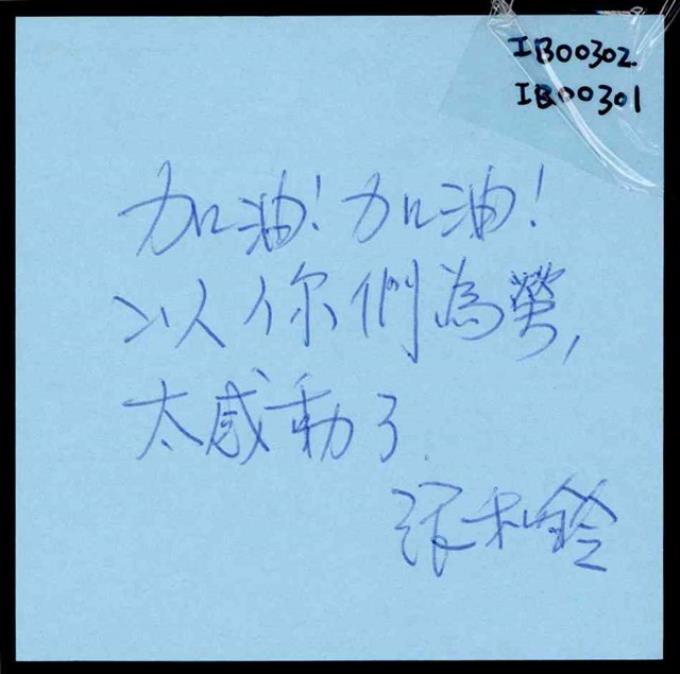 IB00302
IB00301
加油!加油!
以你們為榮,
太感動了.
張和鈴